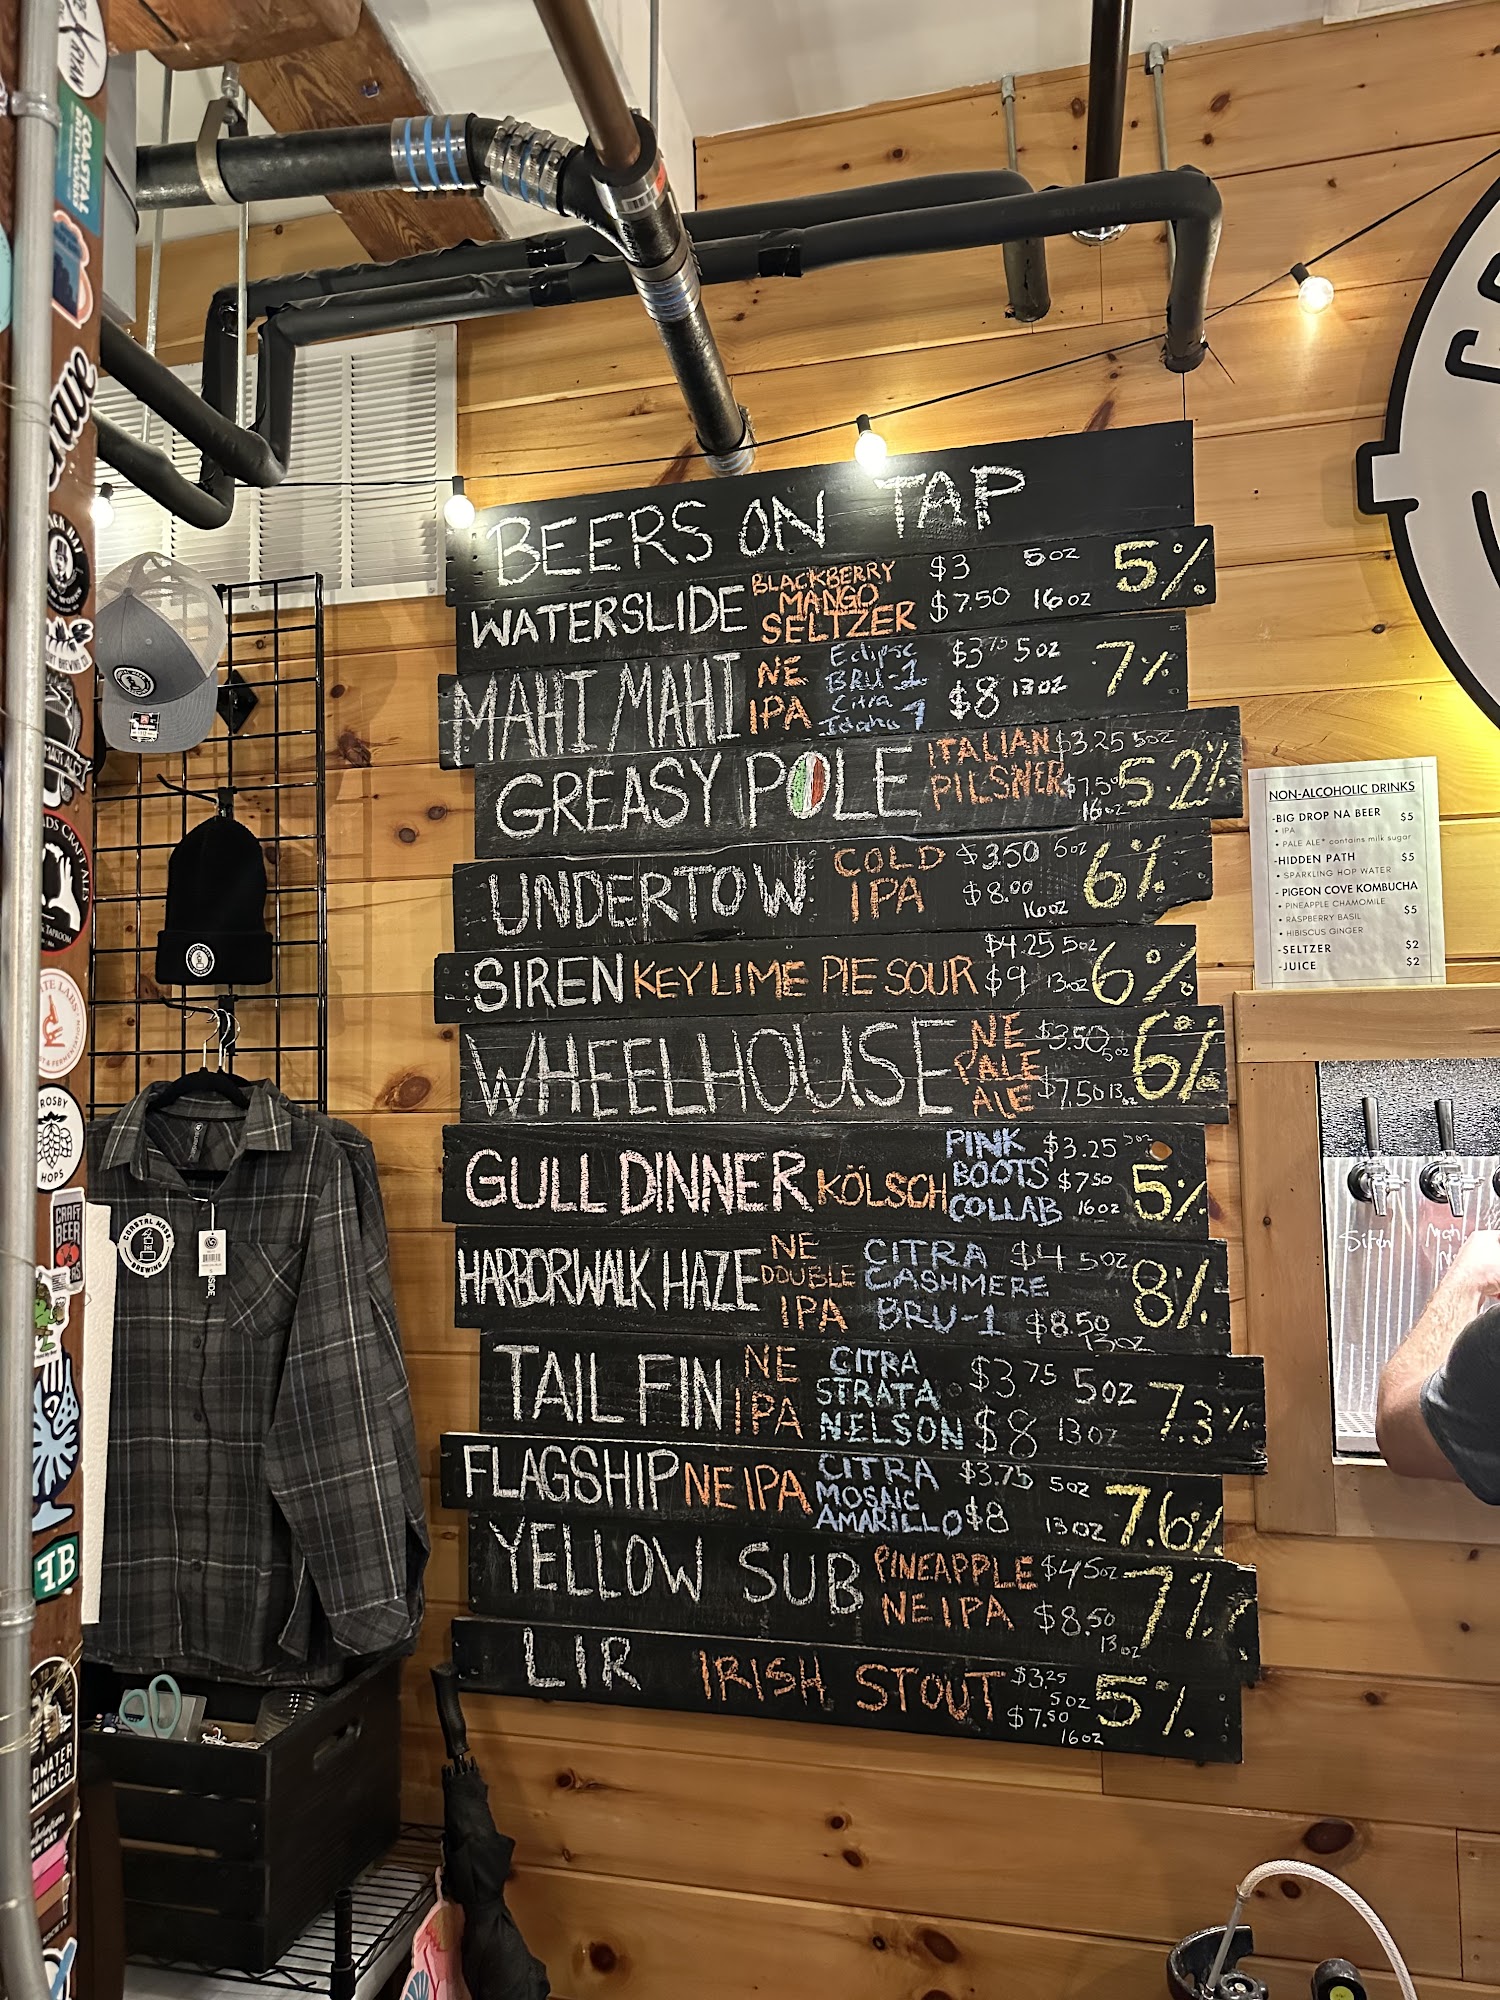 BEERS ON TAP
WATERSLIDE BLACKBERRY MANGO SELTZER $3 5oz $7.50 16oz 5%
MAHI MAHI NE IPA Eclipse BRU-1 Citra Idaho 7 $3.75 5oz $8 13oz 7%
GREASY POLE ITALIAN PILSNER $3.25 5oz $7.50 16oz 5.2%
UNDERTOW COLD IPA $3.50 5oz $8.00 16oz 6%
SIREN KEY LIME PIE SOUR $4.25 5oz $9 13oz 6%
WHEELHOUSE NE PALE ALE $3.50 5oz $7.50 13oz 6%
GULL DINNER KÖLSCH PINK BOOTS COLLAB $3.25 5oz $7.50 16oz 5%
HARBORWALK HAZE NE DOUBLE IPA CITRA CASHMERE BRU-1 $4 5oz $8.50 13oz 8%
TAIL FIN NE IPA CITRA STRATA NELSON $3.75 5oz $8 13oz 7.3%
FLAGSHIP NEIPA CITRA MOSAIC AMARILLO $3.75 5oz $8 13oz 7.6%
YELLOW SUB PINEAPPLE NEIPA $4 5oz $8.50 13oz 7%
LIR IRISH STOUT $3.25 5oz $7.50 16oz 5%
NON-ALCOHOLIC DRINKS
-BIG DROP NA BEER $5
• IPA
• PALE ALE* contains milk sugar
-HIDDEN PATH $5
• SPARKLING HOP WATER
- PIGEON COVE KOMBUCHA
• PINEAPPLE CHAMOMILE
• RASPBERRY BASIL $5
• HIBISCUS GINGER
-SELTZER $2
-JUICE $2
Siren
COASTAL MASS
BREWING
RYAN
COASTAL
CRAFT ALES
TAPROOM
ROSBY
HOPS
CRAFT
BEER